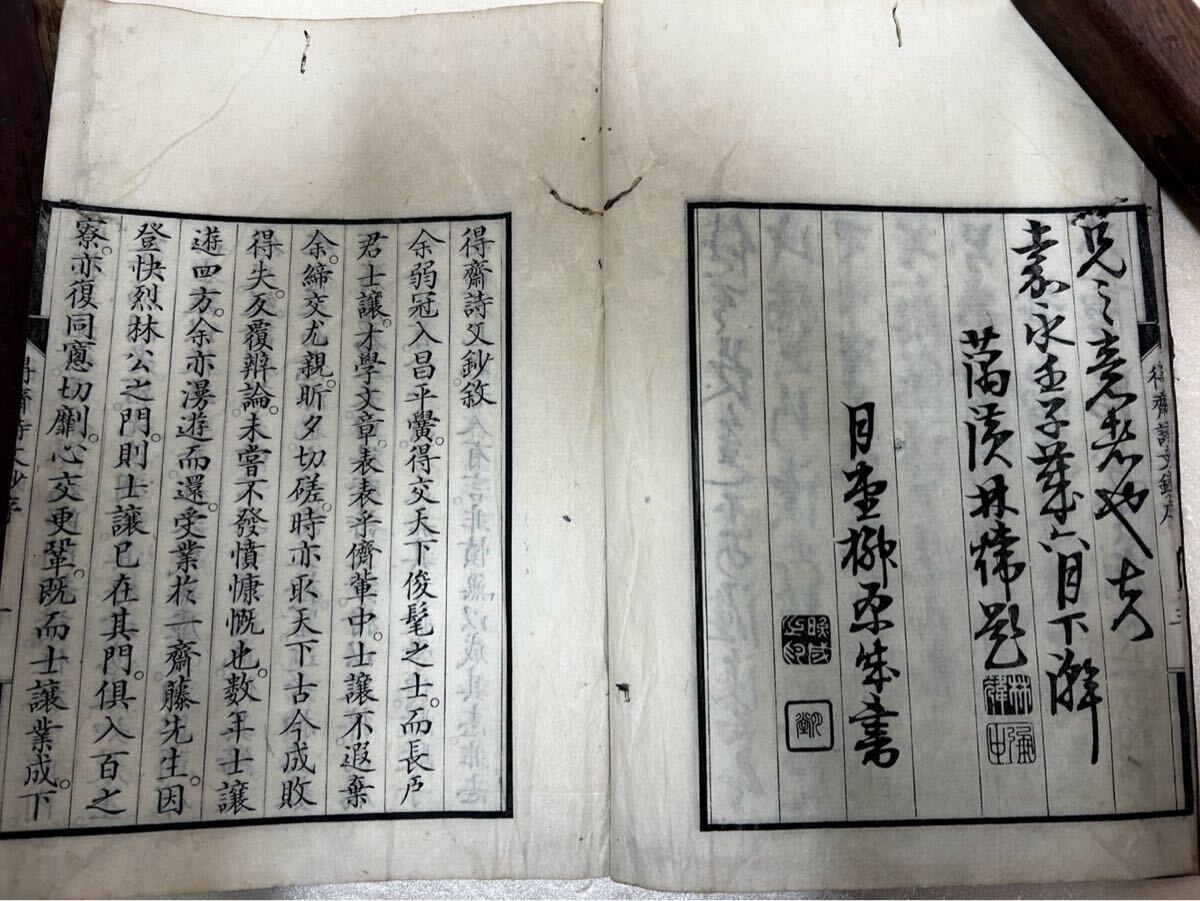 兄之意者也夫
嘉永壬子歲六月下澣
藕潢林煒題
月堂柳原成書
得齋詩文鈔敘
余弱冠入昌平黌。得交天下俊髦之士。而長戶
君士讓。才學文章。表表乎儕輩中。士讓不遐棄
余。締交尤親。昕夕切磋。時亦取天下古今成敗
得失。反覆辨論。未嘗不發憤慷慨也。数年士讓
遊四方。余亦漫遊而還。受業於一齋藤先生。因
登快烈林公之門。則士讓已在其門。俱入百之
寮。亦復同窻。切劘。心交更鞏。既而士讓業成。下